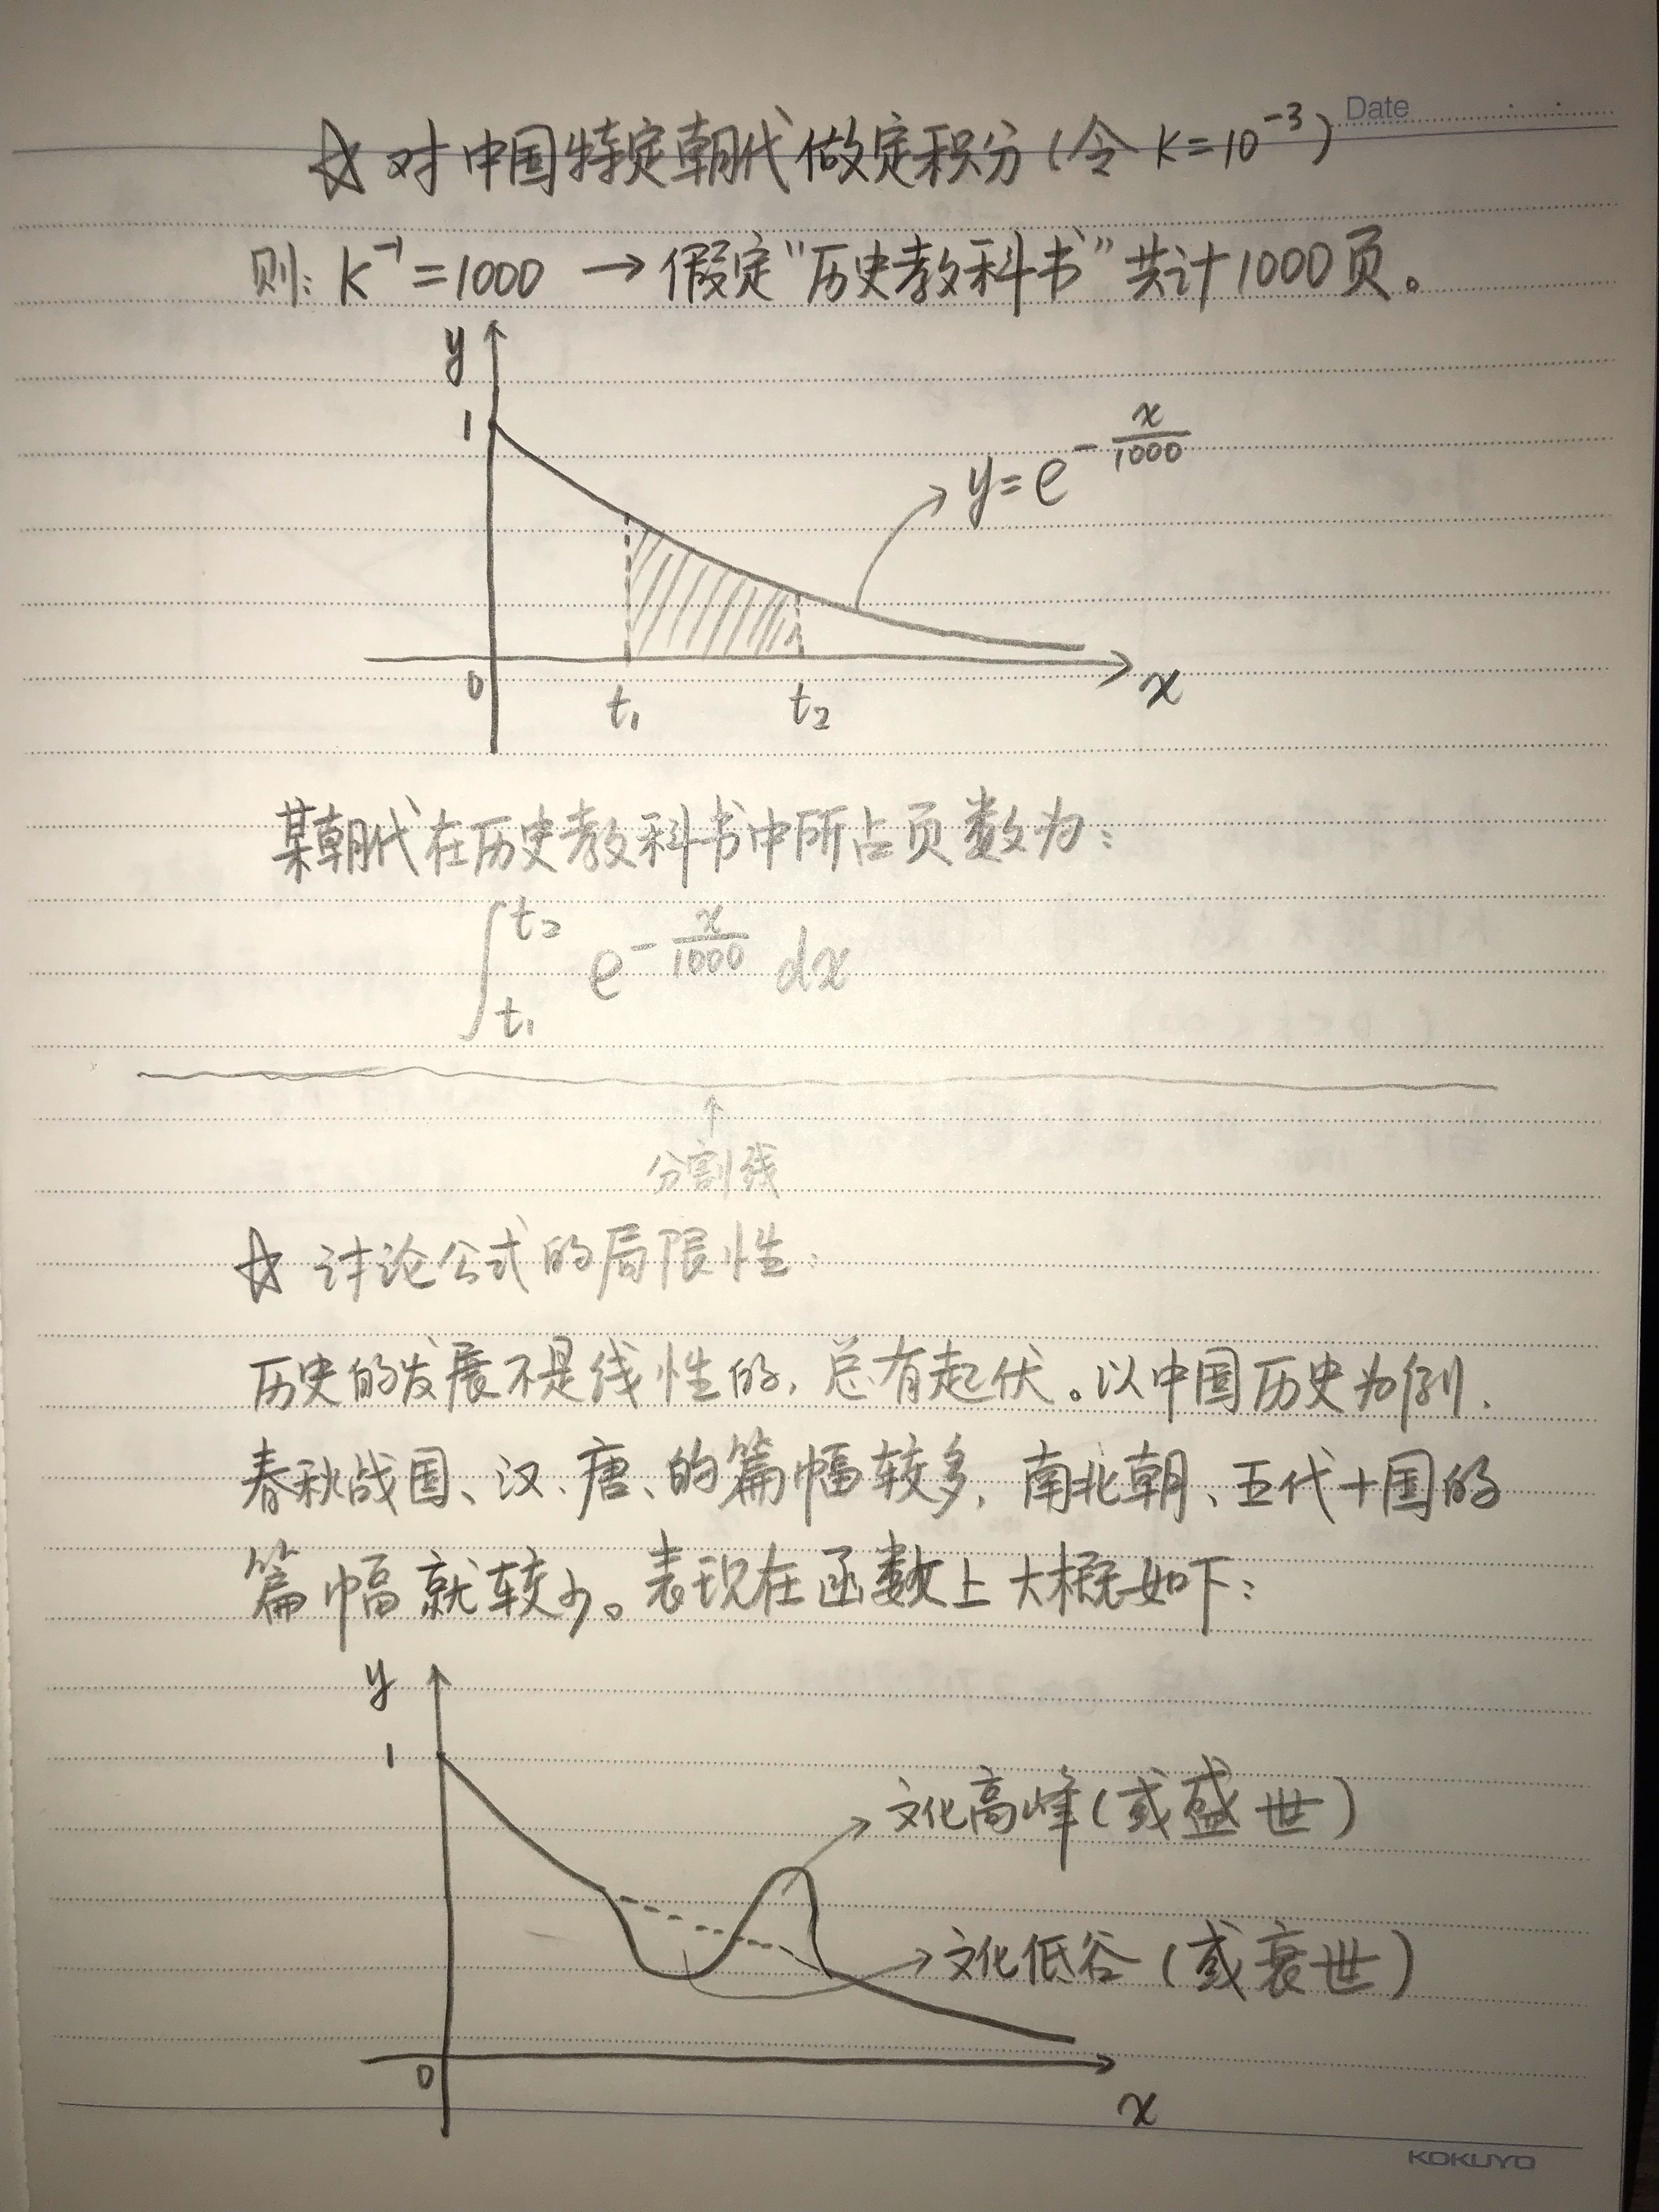 Date
☆ 对中国特定朝代做定积分(令 K=10⁻³)
则: K⁻¹=1000 → 假定"历史教科书"共计1000页。
y
1
y=e^{-x/1000}
0
t₁
t₂
x
某朝代在历史教科书中所占页数为:
∫_{t₁}^{t₂} e^{-x/1000} dx
↑
分割线
☆ 讨论公式的局限性:
历史的发展不是线性的, 总有起伏。以中国历史为例,
春秋战国、汉、唐、的篇幅较多, 南北朝、五代十国的
篇幅就较少。表现在函数上大概如下:
y
1
文化高峰(或盛世)
文化低谷(或衰世)
0
x
KOKUYO